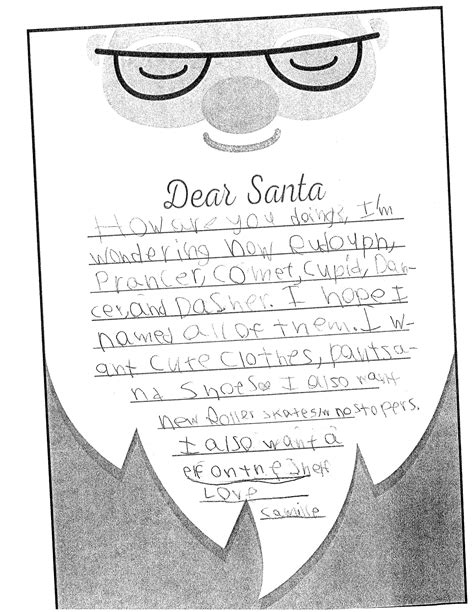 Dear Santa
How are you doing, I'm
wondering how Rudolph,
Prancer, Comet, Cupid, Dan-
cer, and Dasher. I hope I
named all of them. I w-
ant cute clothes, pants a-
nd shoes I also want
new Roller skates w no stopers.
I also want a
elf on the shelf
Love
Camille